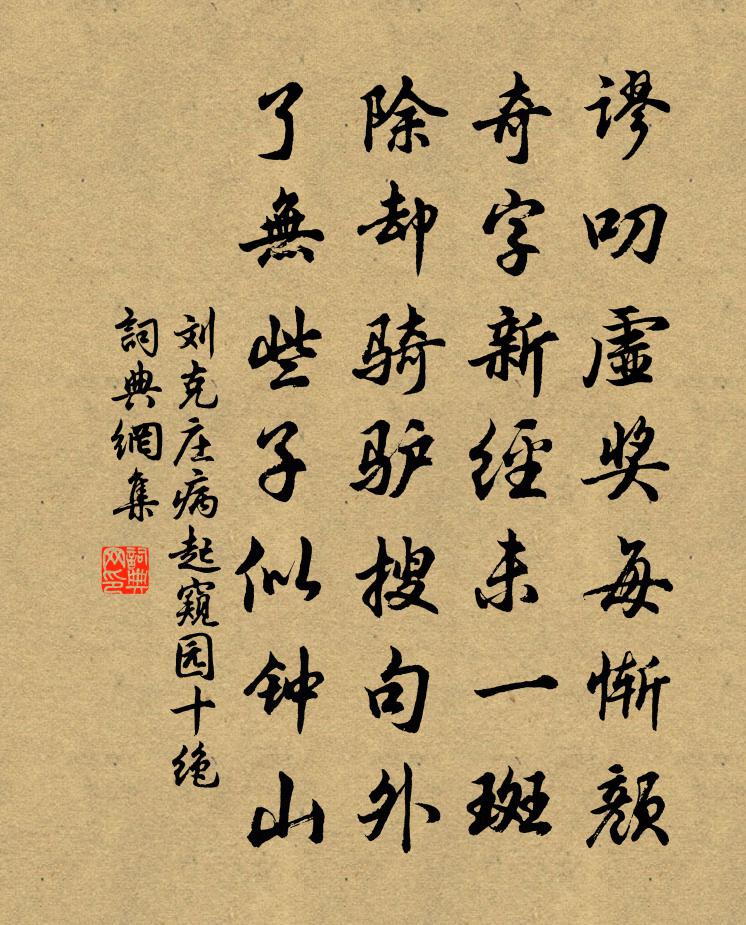 谬叨虚奖每惭颜
奇字新经未一斑
除却骑驴搜句外
了無些子似钟山
刘克庄病起窥园十绝
詞典網集
詞典网印